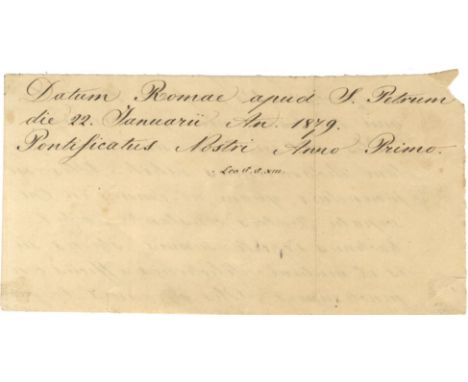 Datum Romae apud S. Petrum
die 22. Ianuarii An. 1879.
Pontificatus Nostri Anno Primo.
Leo P. P. XIII.